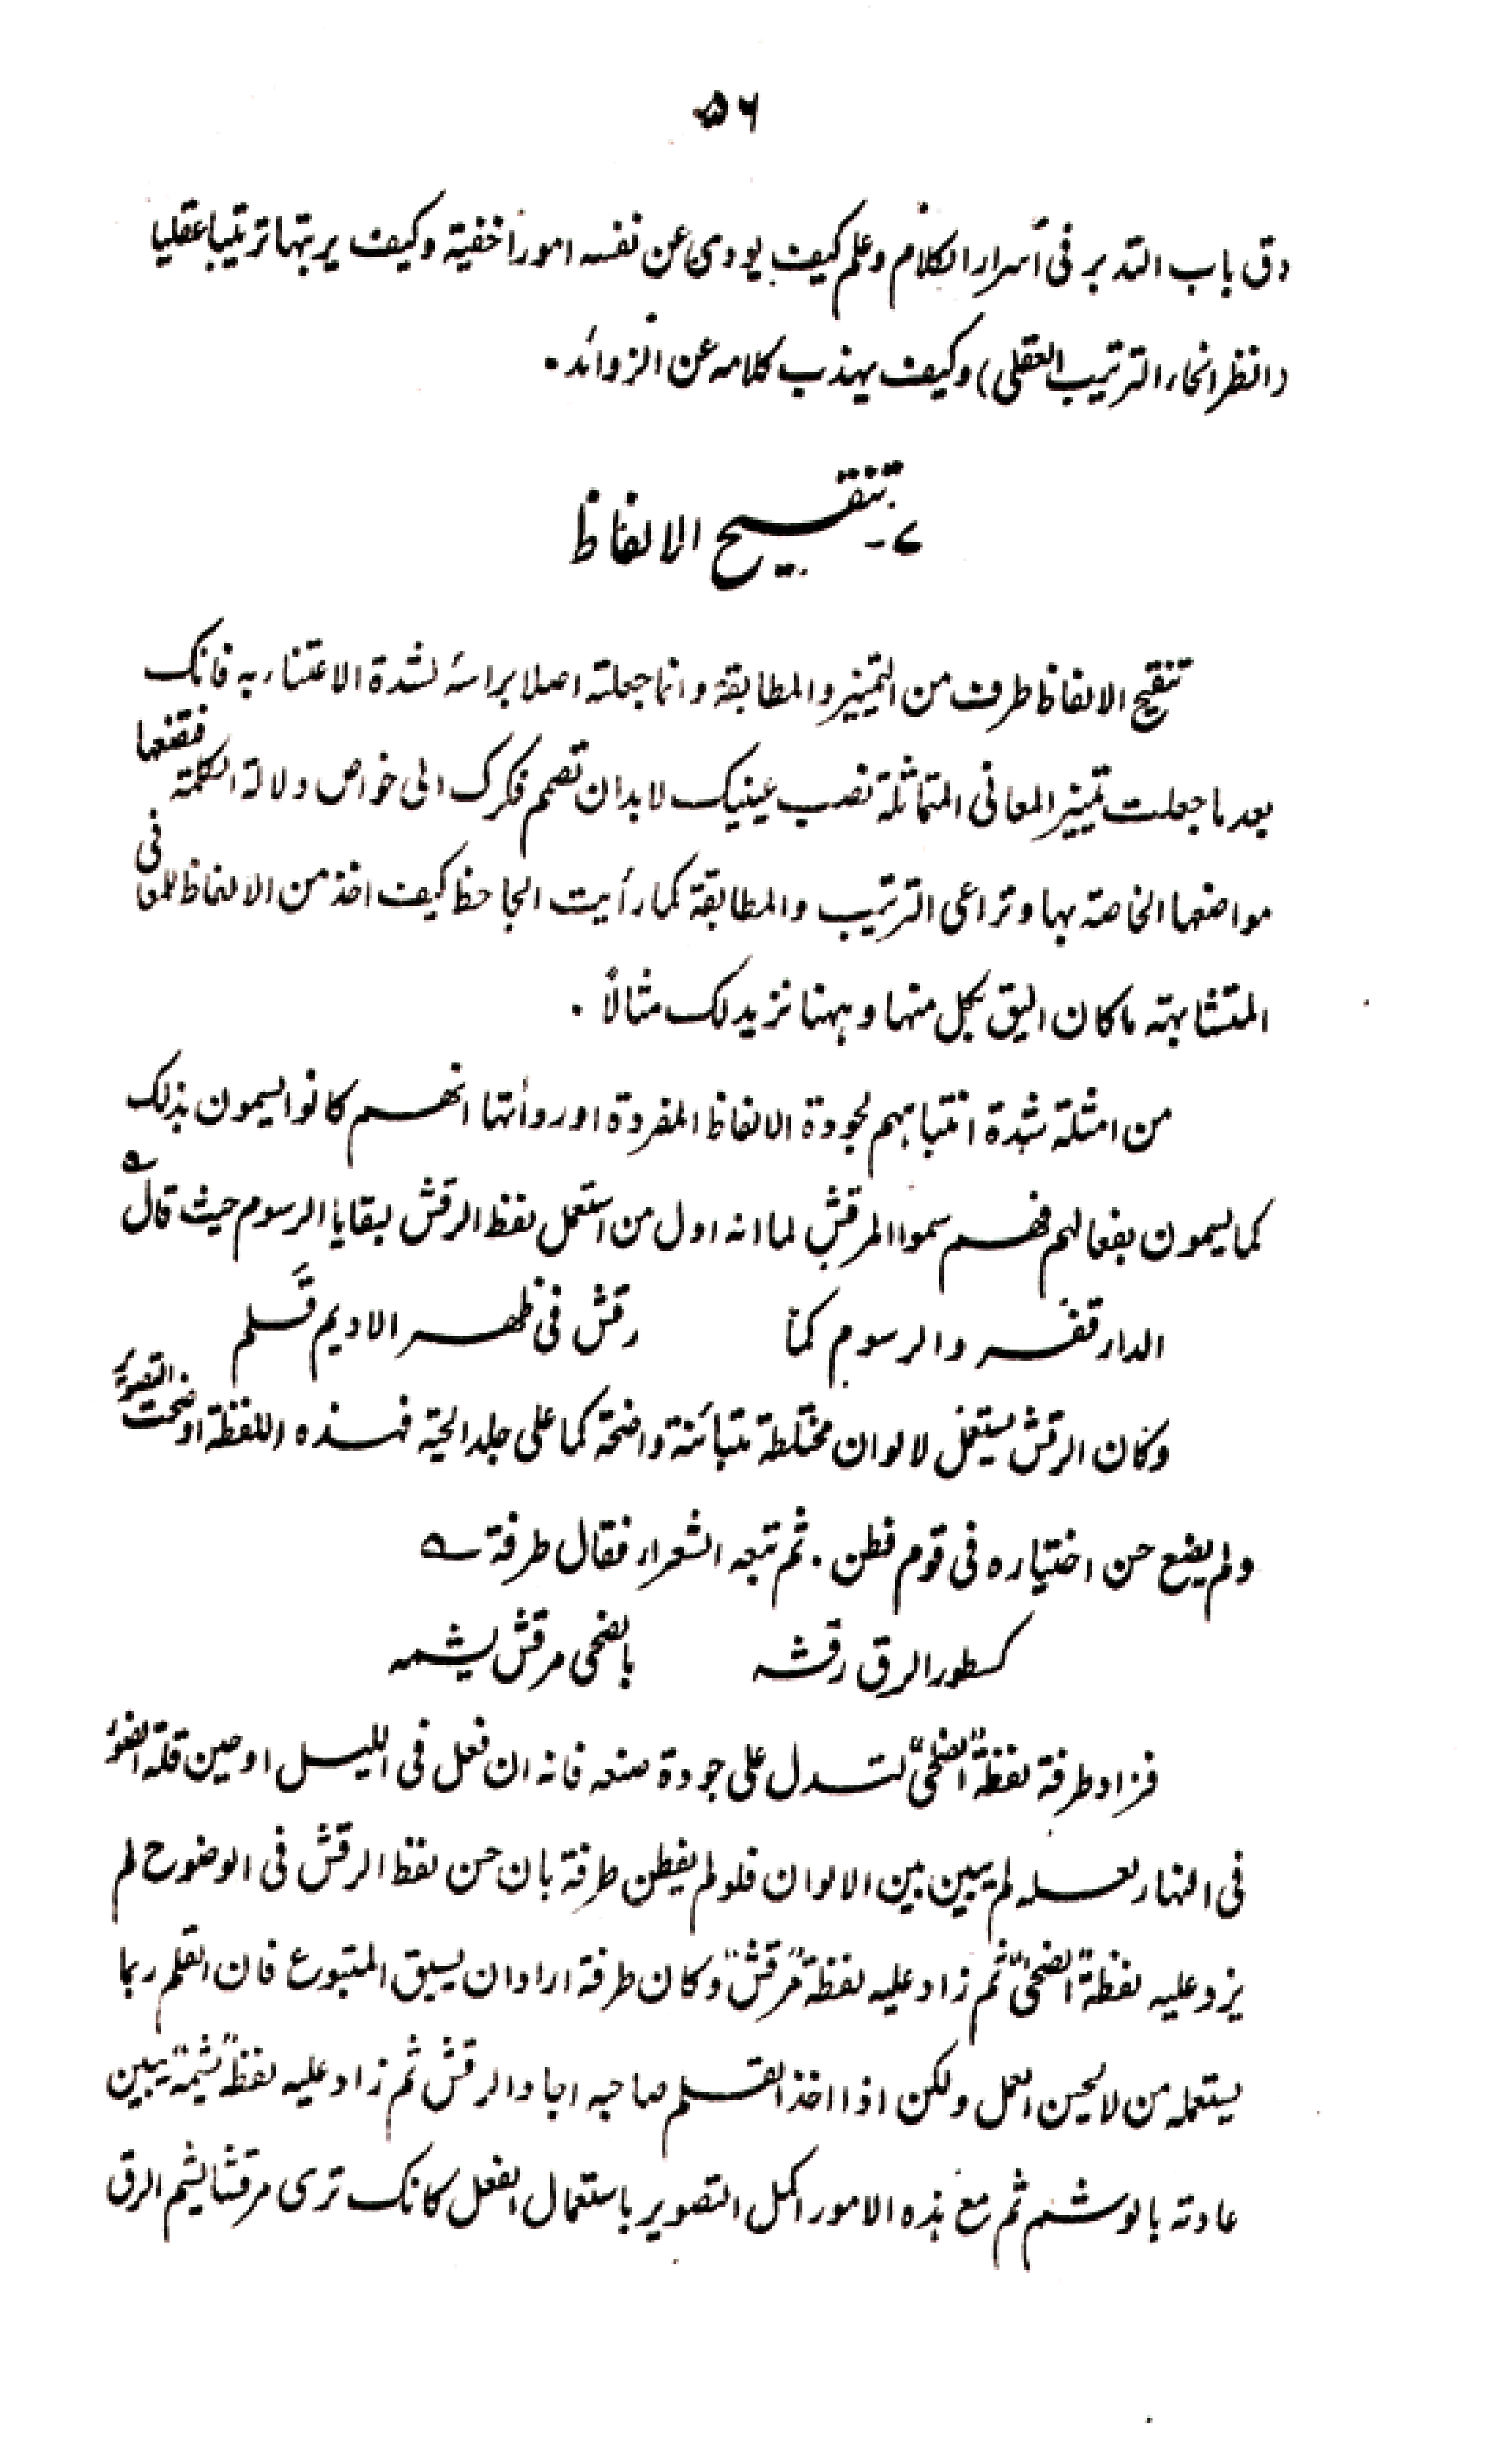 ٥٦
دق باب التدبر فى أسرار الكلام وعلم كيف يودى عن نفسه اموراً خفية وكيف يرتبها ترتيبا عقليا
(انظر انحاء الترتيب العقلى) وكيف يهذب كلامه عن الزوائد.
٧- تنقيح الالفاظ
تنقيح الالفاظ طرف من التمييز والمطابقة وانما جعلته اصلا براسه لشدة الاعتناء به فانك
بعد ما جعلت تمييز المعانى المتماثلة نصب عينيك لا بد ان تصمم فكرك الى خواص دلالة الكلمة فتضعها
مواضعها الخاصة بها وتراعى الترتيب والمطابقة كما رأيت الجاحظ كيف اخذ من الالفاظ للمعانى
المتشابهة ما كان اليق بكل منها وههنا نزيد لك مثالاً.
من امثلة شدة انتباههم لجودة الالفاظ المفردة اوردأتها انهم كانوا يسمون بذلك
كما يسمون بفعالهم فهم سموا المرقش لما انه اول من استعمل لفظ الرقش لبقايا الرسوم حيث قال ؎
الدار قفر والرسوم كما رقش فى ظهر الاديم قلم
وكان الرقش يستعمل لالوان مختلطة متبائنة واضحة كما على جلد الحية فهذه اللفظة اوضحت التصوير
ولم يضع حسن اختياره فى قوم فطن. ثم تبعه الشعراء فقال طرفة ؎
كسطور الرق رقشه بالضحى مرقش يشمه
فزاد طرفة لفظة "الضحى" لتدل على جودة صنعه فانه ان فعل فى الليل او حين قلة الضوء
فى النهار لعله لم يبين بين الالوان فلو لم يفطن طرفة بان حسن لفظ الرقش فى الوضوح لم
يزد عليه لفظة "الضحى" ثم زاد عليه لفظة "مرقش" وكان طرفة اراد ان يسبق المتبوع فان القلم ربما
يستعمله من لا يحسن العمل ولكن اذا اخذ القلم صاحبه اجاد الرقش ثم زاد عليه لفظ "يشمه" يبين
عادته بالوشم ثم مع هذه الامور اكمل التصوير باستعمال الفعل كانك ترى مرقشا يشم الرق